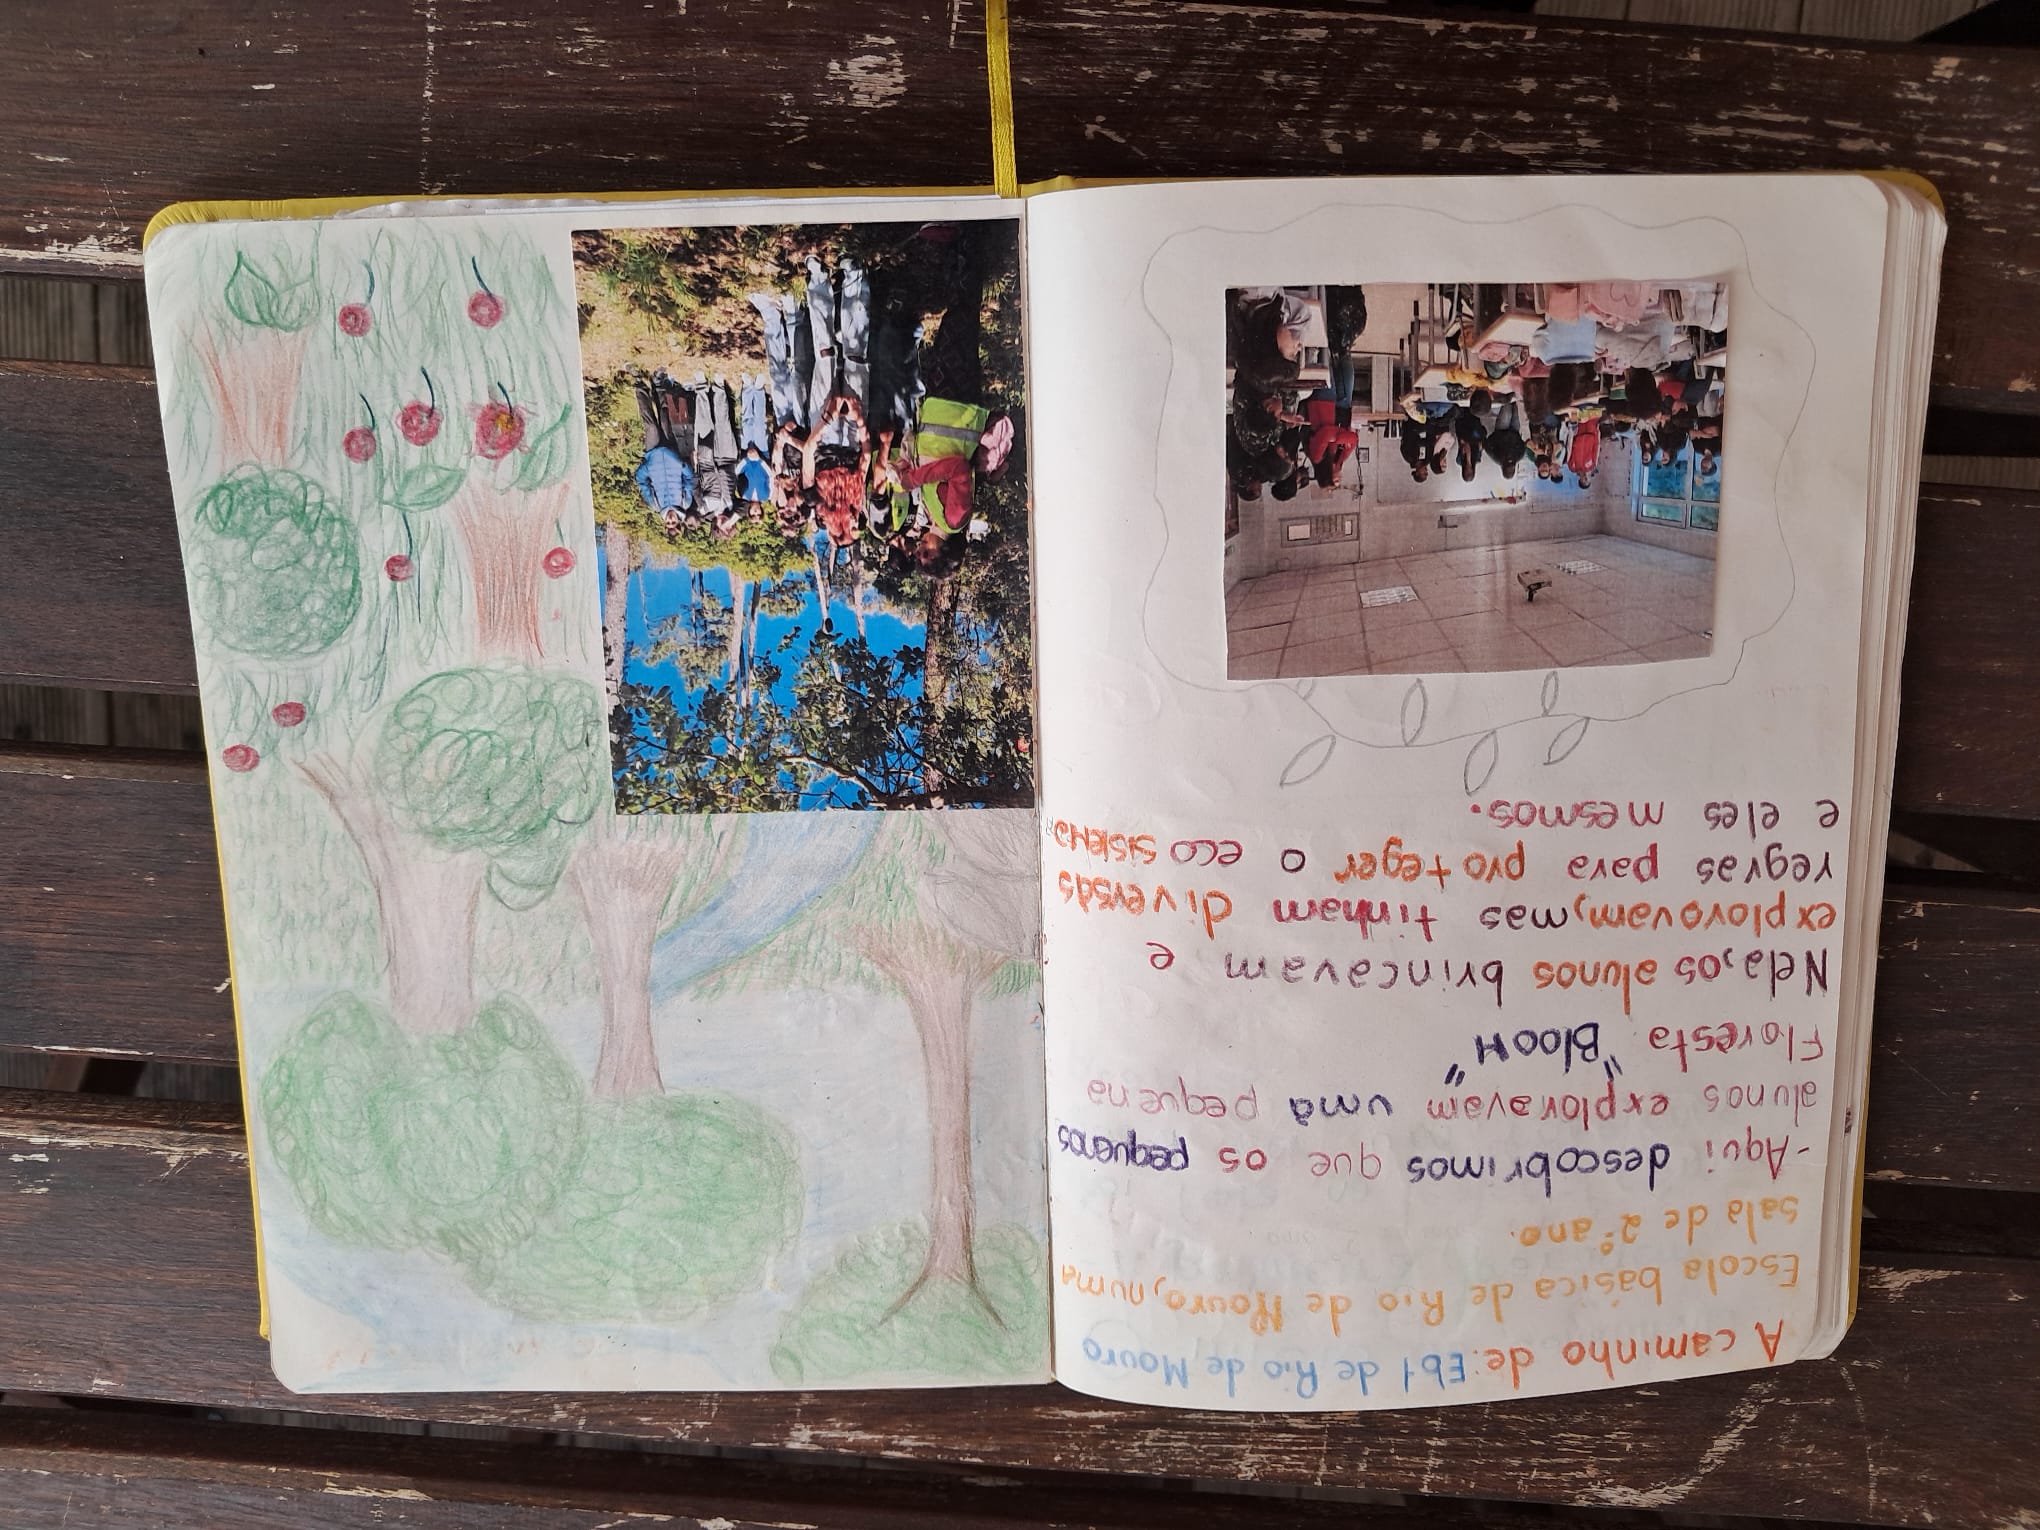 A caminho de: Eb1 de Rio de Mouro
Escola básica de Rio de Mouro, numa
sala de 2º ano.
-Aqui descobrimos que os pequenos
alunos exploravam uma pequena
Floresta "BlooM"
Nela, os alunos brincavam e
explorovam, mas tinham diversas
regras para proteger o eco sistema
e eles mesmos.